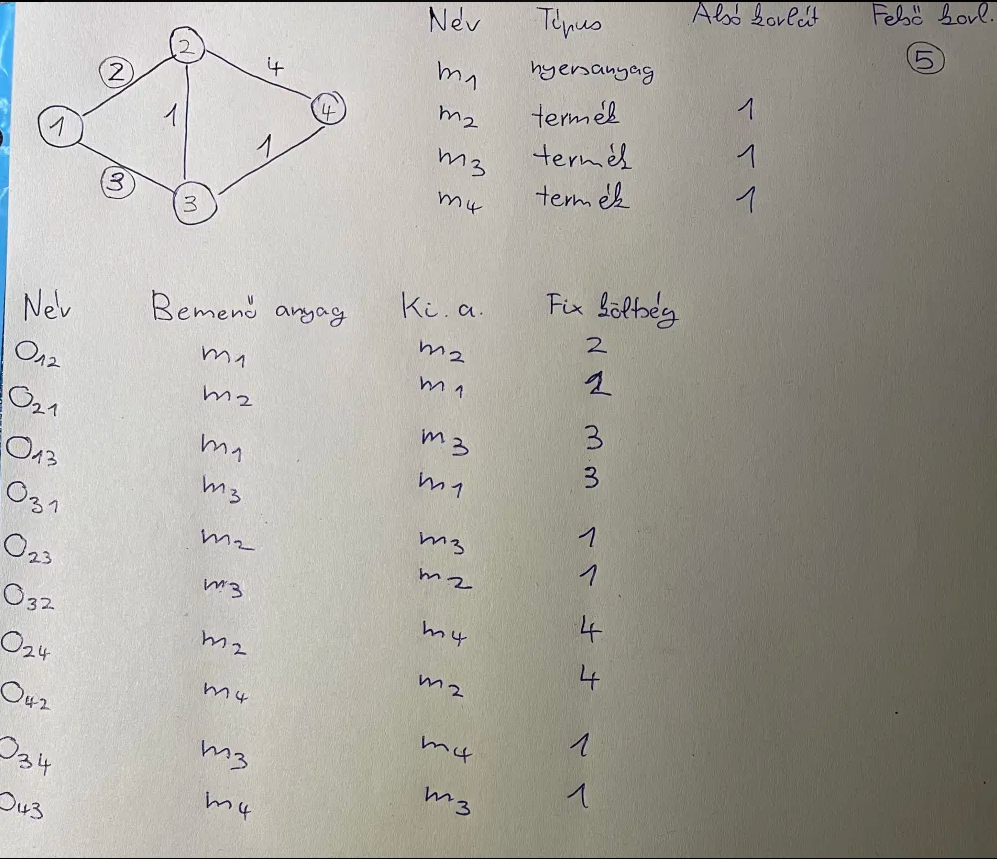 Név Típus Alsó korlát Felső korl.
m1 nyersanyag 5
m2 termék 1
m3 termék 1
m4 termék 1
2
2
4
1
1
4
1
3
3
Név Bemenő anyag Ki. a. Fix költség
O12 m1 m2 2
O21 m2 m1 2
O13 m1 m3 3
O31 m3 m1 3
O23 m2 m3 1
O32 m3 m2 1
O24 m2 m4 4
O42 m4 m2 4
O34 m3 m4 1
O43 m4 m3 1